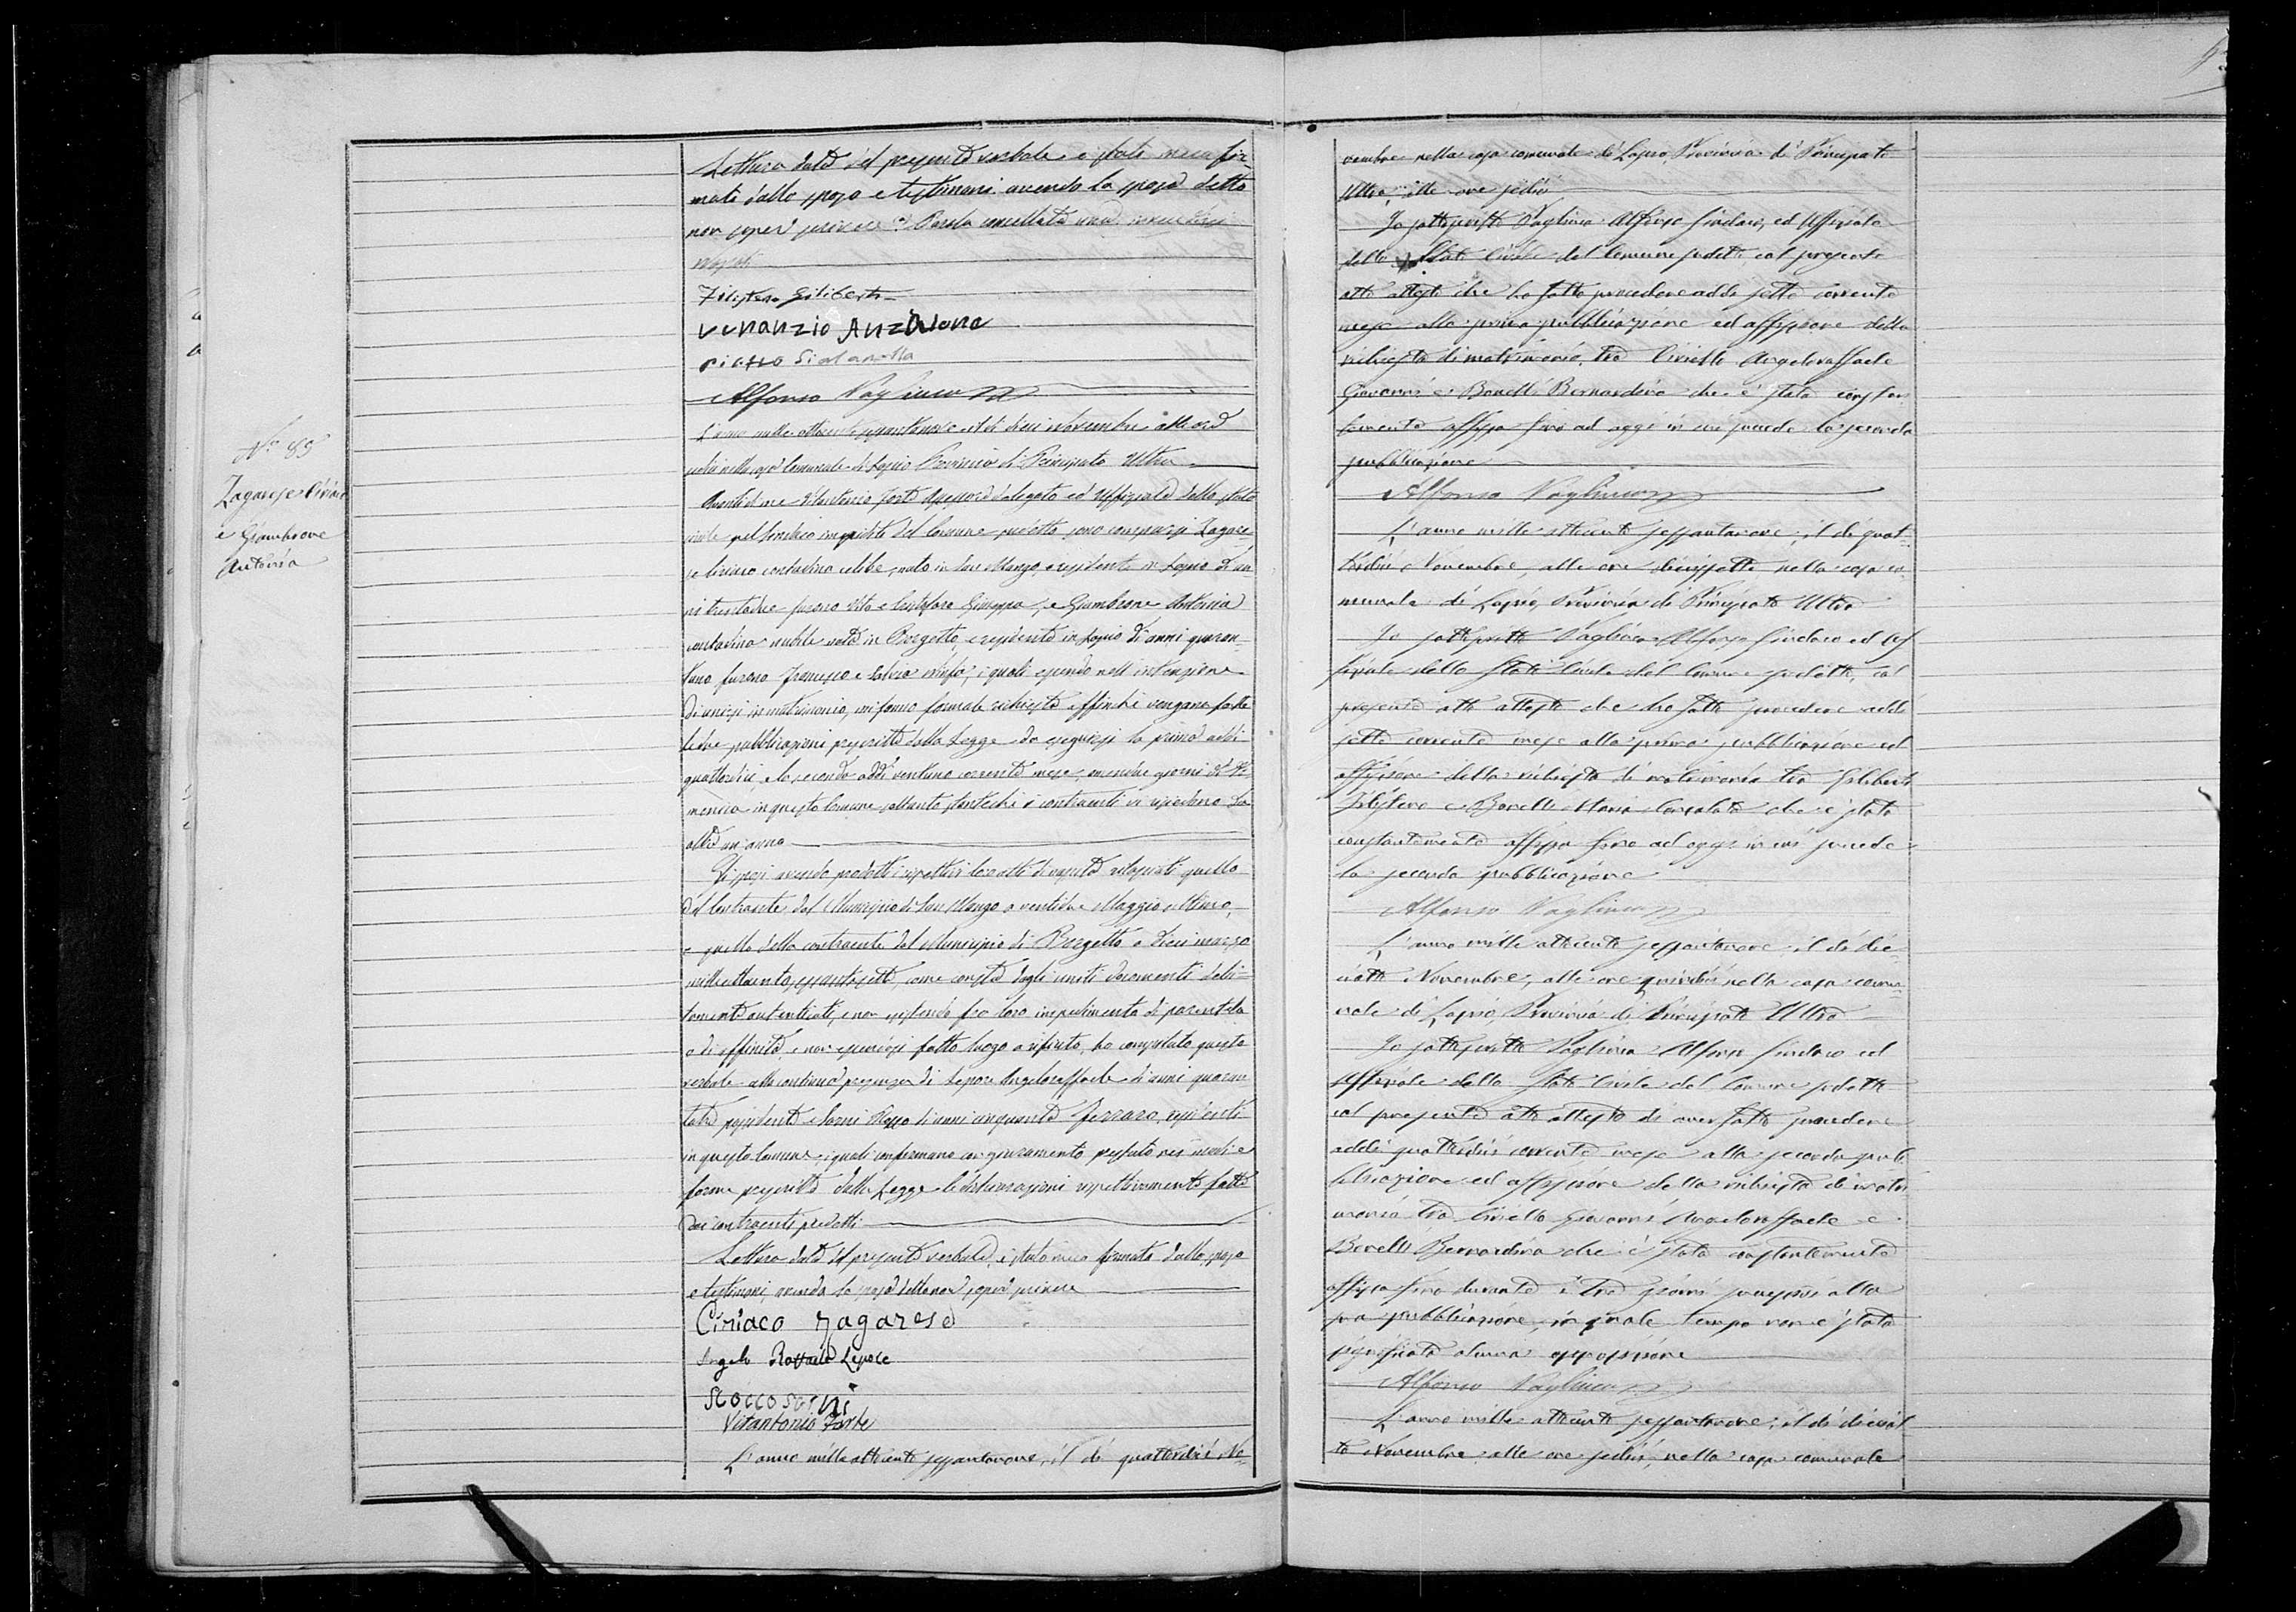 Lettura data del presente verbale è stato meco fir-
mato dallo sposo e testimoni avendo la sposa detto
non saper scrivere. Parola cancellata una
Filistero Giliberti
Venanzio Anzalone
Alfonso Vagliuca
L'anno mille ottocento sessantanove ed il dì dieci Novembre alle ore
sedici nella casa Comunale di Lapio Provincia di Principato Ultra
Avanti di me Vitantonio Forte Assessore delegato ed Uffiziale dello Stato
civile pel Sindaco impedito del Comune suddetto sono comparsi Zagare-
se Ciriaco contadino celibe, nato in San Mango, e residente in Lapio di an-
ni trentadue furono Vito e Giuseppa, e Giambrone Antonia
contadina nubile nata in Borgetto, e residente in Lapio di anni quaran-
tuno furono Francesco e, i quali essendo nell'intenzione
di unirsi in matrimonio, mi fanno formale richiesta affinchè vengano fatte
le due pubblicazioni prescritte dalla Legge da eseguirsi la prima addì
quattordici, e la seconda addì ventuno corrente mese, amendue giorni di Do-
menica in questo Comune soltanto stantechè i contraenti vi risiedono da
oltre un anno
Gli sposi avendo prodotti i rispettivi loro atti di nascita rilasciati quello
del contraente dal Municipio di San Mango a ventidue Maggio ultimo,
e quello della contraente dal Municipio di Borgetto a dieci marzo
milleottocentosessantasette, come consta dagli uniti documenti debi-
tamente autenticati, e non esistendo fra loro impedimento di parentela
o di affinità, e non essendosi fatto luogo a rifiuto, ho compilato questo
verbale alla continua presenza di Lepore Angeloraffaele di anni quaran-
tatre possidente e Sarni Rocco di anni cinquanta ferraro, residenti
in questo Comune, i quali confermano con giuramento prestato nei modi e
forme prescritte dalla Legge le dichiarazioni rispettivamente fatte
dai contraenti predetti
Lettura data del presente verbale, è stato meco firmato dallo sposo
e testimoni, avendo la sposa detto non saper scrivere
Ciriaco Zagarese
Angelo Raffaele Lepore
Rocco Sarni
Vitantonio Forte
L'anno mille ottocento sessantanove, il dì quattordici No-
N.° 89
Zagarese Ciriaco
e Giambrone
Antonia
vembre nella casa comunale di Lapio, Provincia di Principato
Ultra, alle ore sedici
Io sottoscritto Vagliuca Alfonso Sindaco, ed Uffiziale
dello Stato Civile del Comune sudetto, col presente
atto attesto che ho fatto procedere addì sette corrente
mese alla prima pubblicazione ed affissione della
richiesta di matrimonio tra Ciriello Angeloraffaele
Giovanni e Bonelli Bernardina che è stata costan
temente affissa sino ad oggi in cui succede la seconda
pubblicazione
Alfonso Vagliuca
L'anno mille ottocento sessantanove, il dì quat-
tordici Novembre, alle ore diciassette nella casa co-
munale di Lapio, Provincia di Principato Ultra
Io sottoscritto Vagliuca Alfonso Sindaco ed Uf
fiziale dello Stato Civile del Comune sudetto, col
presente atto attesto che ho fatto procedere addì
sette corrente mese alla prima pubblicazione ed
affissione della richiesta di matrimonio tra Giliberti
Filistero e Bonelli Maria che è stata
costantemente affissa sino ad oggi in cui succede
la seconda pubblicazione
Alfonso Vagliuca
L'anno mille ottocento sessantanove, il dì dic-
iotto Novembre, alle ore quindici nella casa comu-
nale di Lapio, Provincia di Principato Ultra
Io sottoscritto Vagliuca Alfonso Sindaco ed
Uffiziale dello Stato Civile del Comune sudetto
col presente atto attesto di aver fatto procedere
addì quattordici corrente mese alla seconda pub
blicazione ed affissione della richiesta di matri
monio tra Ciriello Giovanni Angeloraffaele e
Bonelli Bernardina che è stata costantemente
affissa sino durante i tre giorni successivi alla
sua pubblicazione, in quale tempo non è stata
significata alcuna opposizione
Alfonso Vagliuca
L'anno mille ottocento sessantanove, il dì diciot
to Novembre alle ore sedici, nella casa comunale